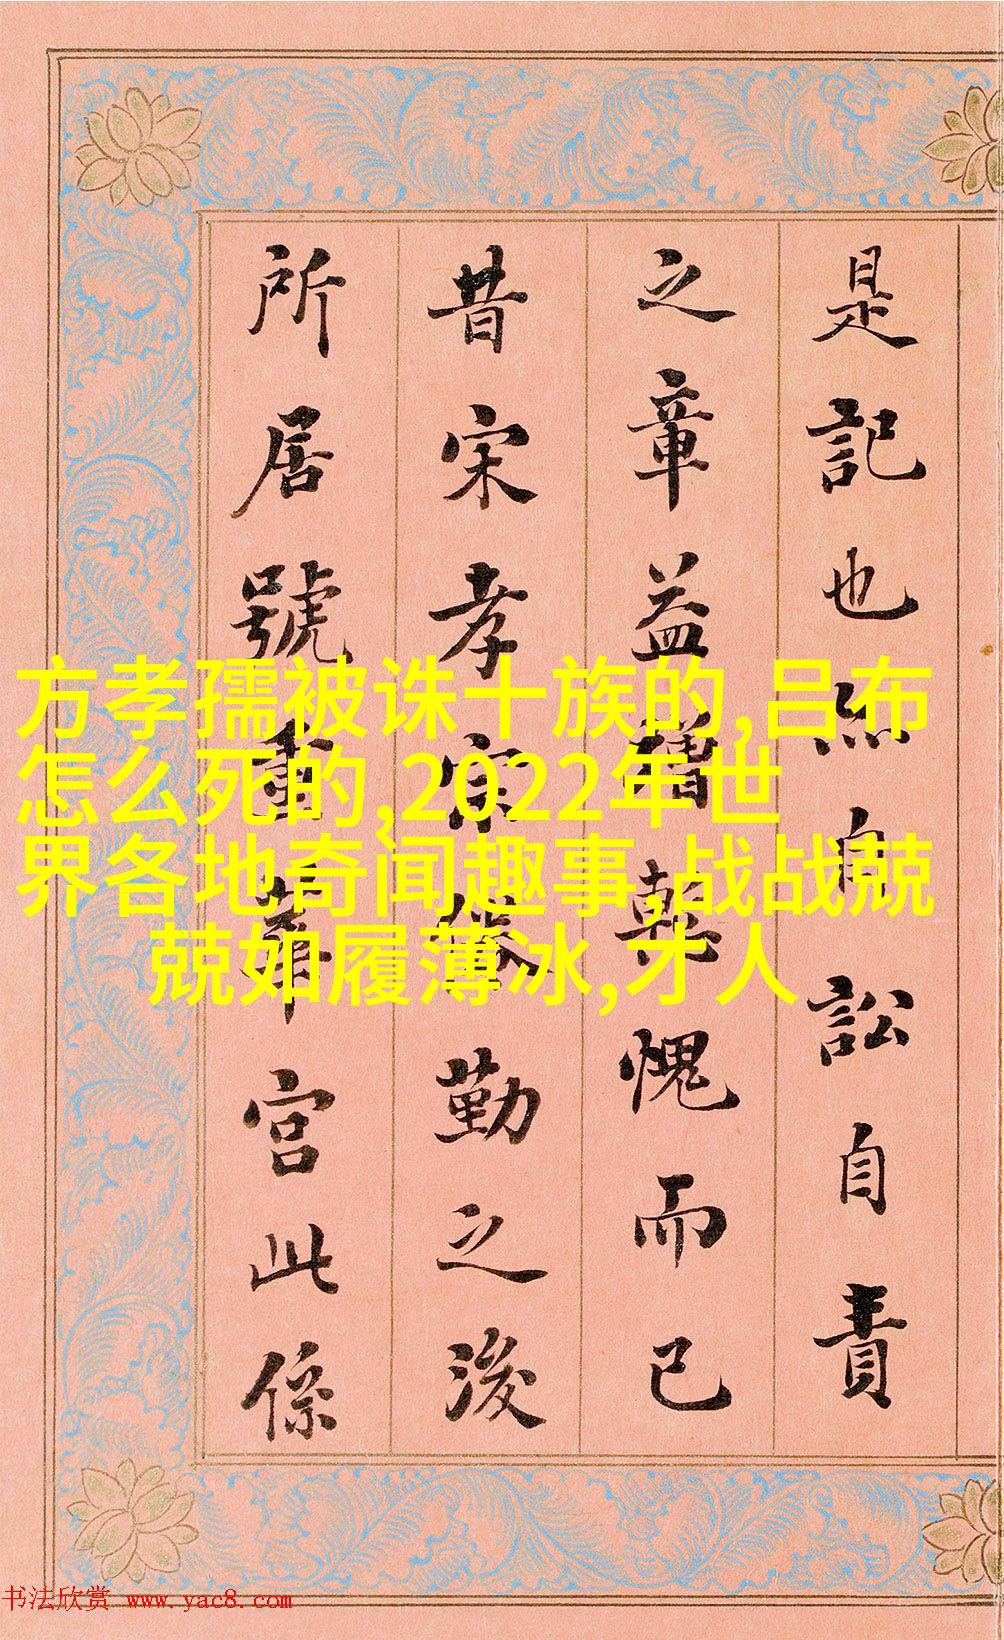 是記也然自訟自責
之章益增慙愧而已
昔宋孝宗倦勤之後
所居號重華宮此係
方孝孺被诛十族的,吕布
怎么死的,2022年世
界各地奇闻趣事,战战兢
兢如履薄冰,才人
书法欣赏 www.yac8.com